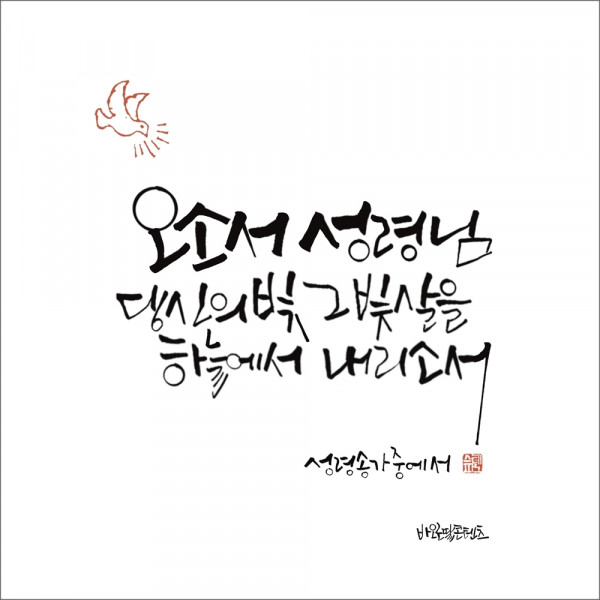 오소서 성령님
당신의 빛 그 빛살을
하늘에서 내리소서
성령송가 중에서
바오로딸콘텐츠